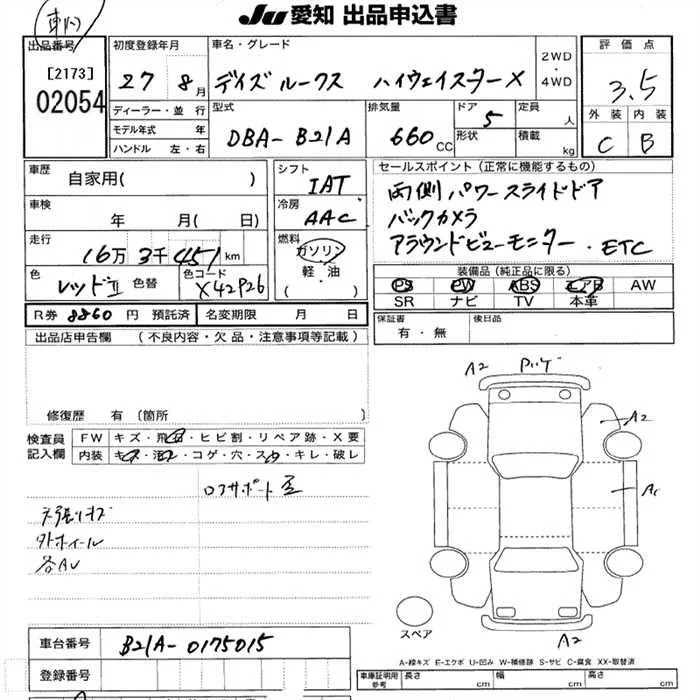 JU 愛知 出品申込書
車内
出品番号
[2173]
02054
初度登録年月
27 8月
車名・グレード
デイズ ルークス ハイウェイスターX
2WD
・
4WD
評価点
3.5
外装 内装
C B
ディーラー・並行
モデル年式 年
ハンドル 左・右
型式
DBA-B21A
排気量
660cc
ドア
5
形状
定員
人
積載
kg
車歴
自家用( )
車検
年 月( 日)
走行
16万 3千 451 km
色
レッドⅡ 色替
色コード
X42P26
シフト
IAT
冷房
AAC
燃料
ガソリン
軽・油
( ・ )
セールスポイント(正常に機能するもの)
両側パワースライドドア
バックカメラ
アラウンドビューモニター・ETC
装備品(純正品に限る)
PS PW ABS エアB AW
SR ナビ TV 本革
R券 8860 円 預託済
名変期限 月 日
保証書
有・無
後日品
出品店申告欄 (不良内容・欠品・注意事項等記載)
修復歴 有 (箇所
検査員
記入欄
FW キズ・飛石・ヒビ割・リペア跡・X要
内装 キズ・汚レ・コゲ・穴・スレ・キレ・破レ
天張りキズ
外ホイール
各AU
A2
A2
A1
A2
スペア
A-線キズ E-エクボ U-凹み W-補修跡 S-サビ C-腐食 XX-取替済
車台番号 B21A-0175015
登録番号
車庫証明用
参考
長さ cm 幅 cm 高さ cm